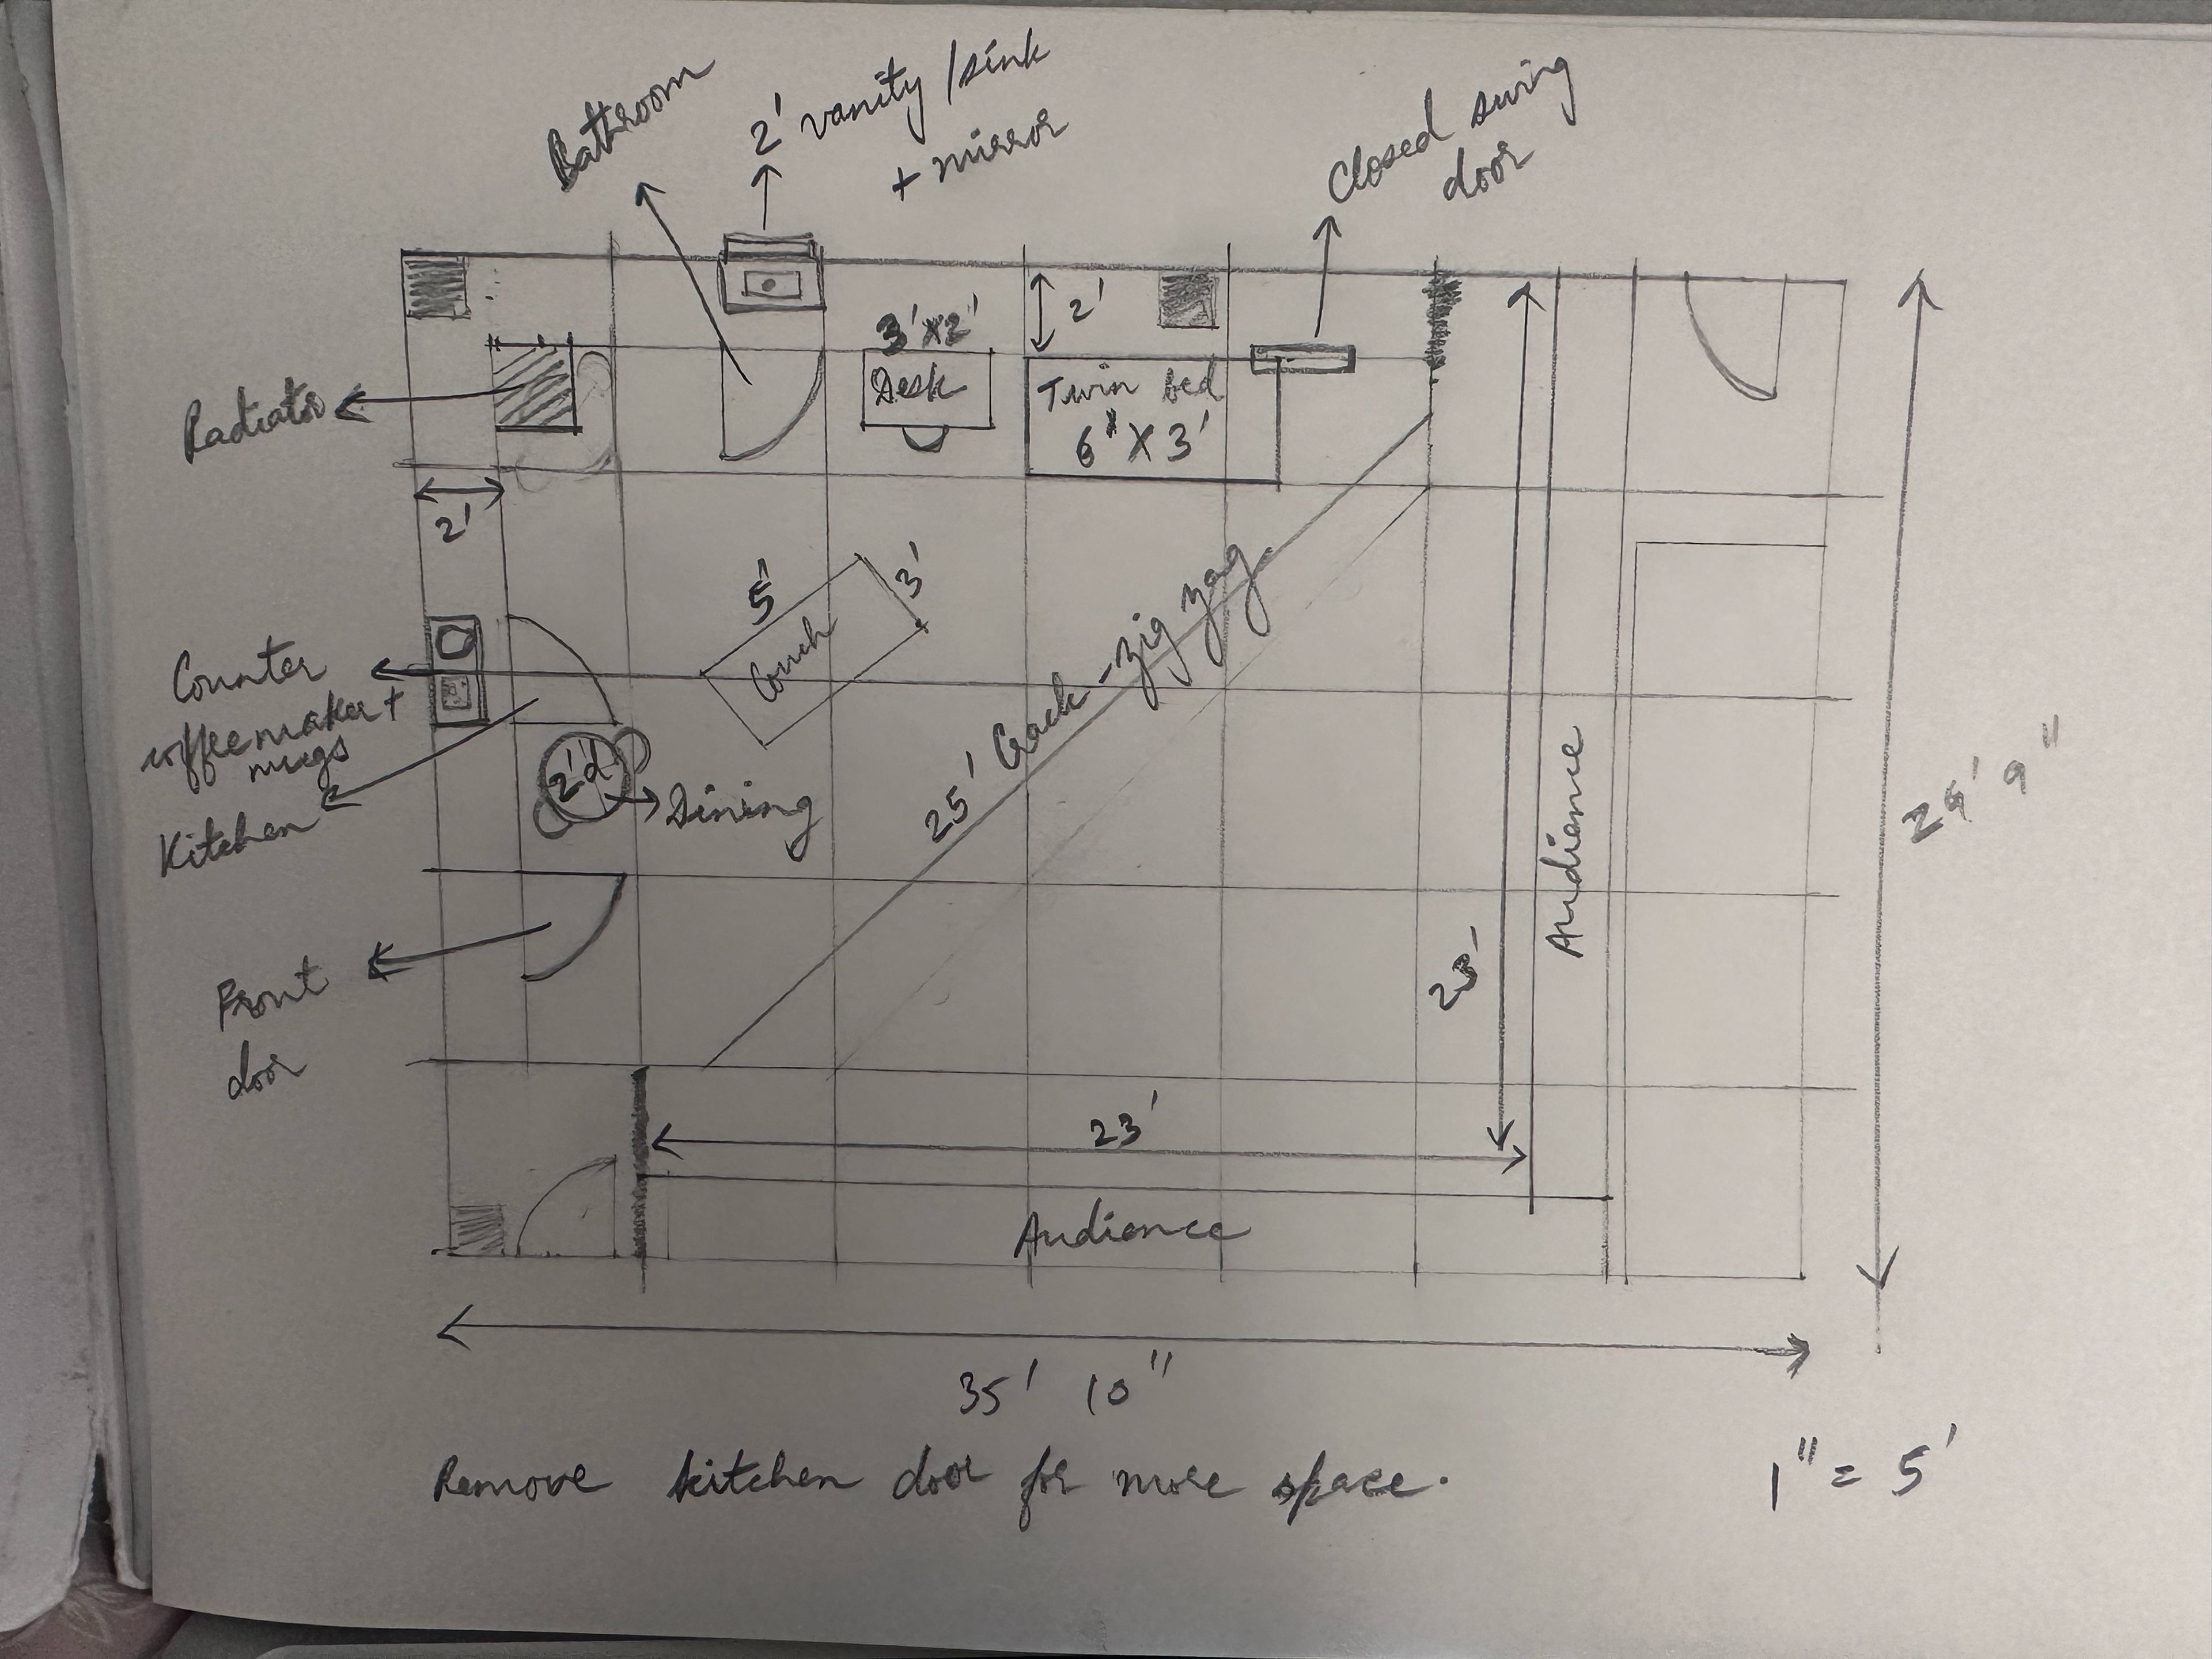 Bathroom
2' vanity/sink
+ mirror
Closed swing
door
3'x2'
Desk
2'
Twin bed
6" X 3'
Radiator
2'
5'
3'
Couch
25' Crack - zig zag
Counter
coffeemaker +
mugs
Kitchen
2'd
Dining
Front
door
Audience
23'
Audience
35' 10"
Remove kitchen door for more space.
1" = 5'